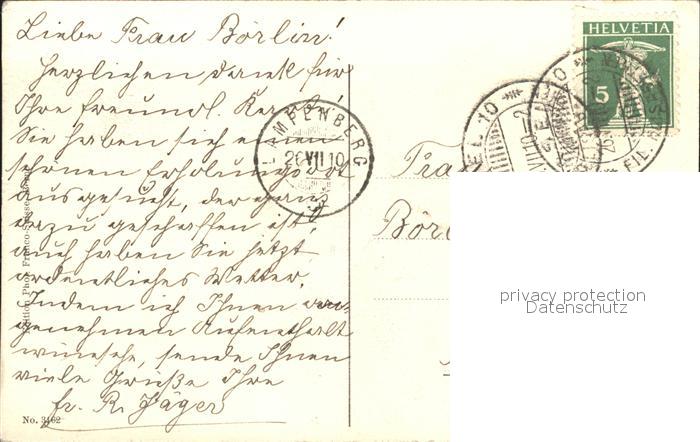 Liebe Frau Börlin!
Herzlichen Dank für
Ihre freundl. Karte!
Sie haben sich einen
schönen Erholungsort
ausgesucht, der ganz
dazu geschaffen ist,
auch haben Sie jetzt
ordentliches Wetter.
Indem ich Ihnen
genehmen Aufenthalt
wünsche, sende Ihnen
viele Grüße Ihre
fr. R. Jäger
No. 3162
Edition Phot. Franco-Suisse
LAMPENBERG
26 VII 10
HELVETIA
5
FIL.
Frau
Bör
privacy protection
Datenschutz